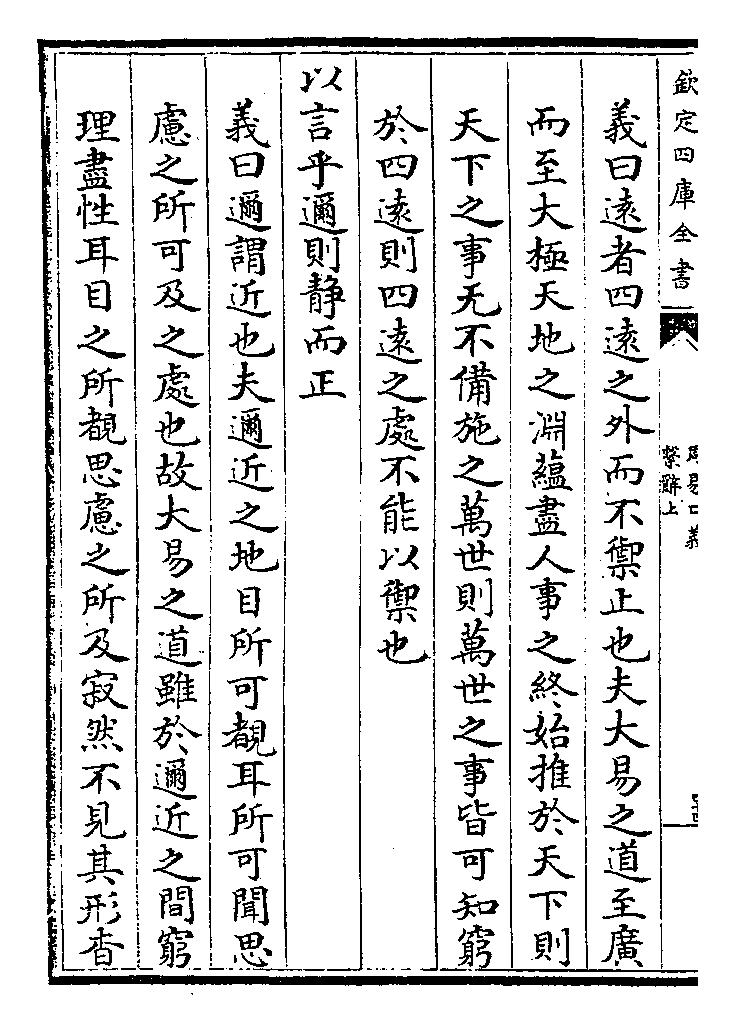 欽定四庫全書
周易口義
繫辭上
義曰逺者四逺之外而不禦止也夫大易之道至廣
而至大極天地之淵藴盡人事之終始推於天下則
天下之事无不備施之萬世則萬世之事皆可知窮
於四逺則四逺之處不能以禦也
以言乎邇則静而正
義曰邇謂近也夫邇近之地目所可覩耳所可聞思
慮之所可及之處也故大易之道雖於邇近之間窮
理盡性耳目之所覩思慮之所及寂然不見其形杳